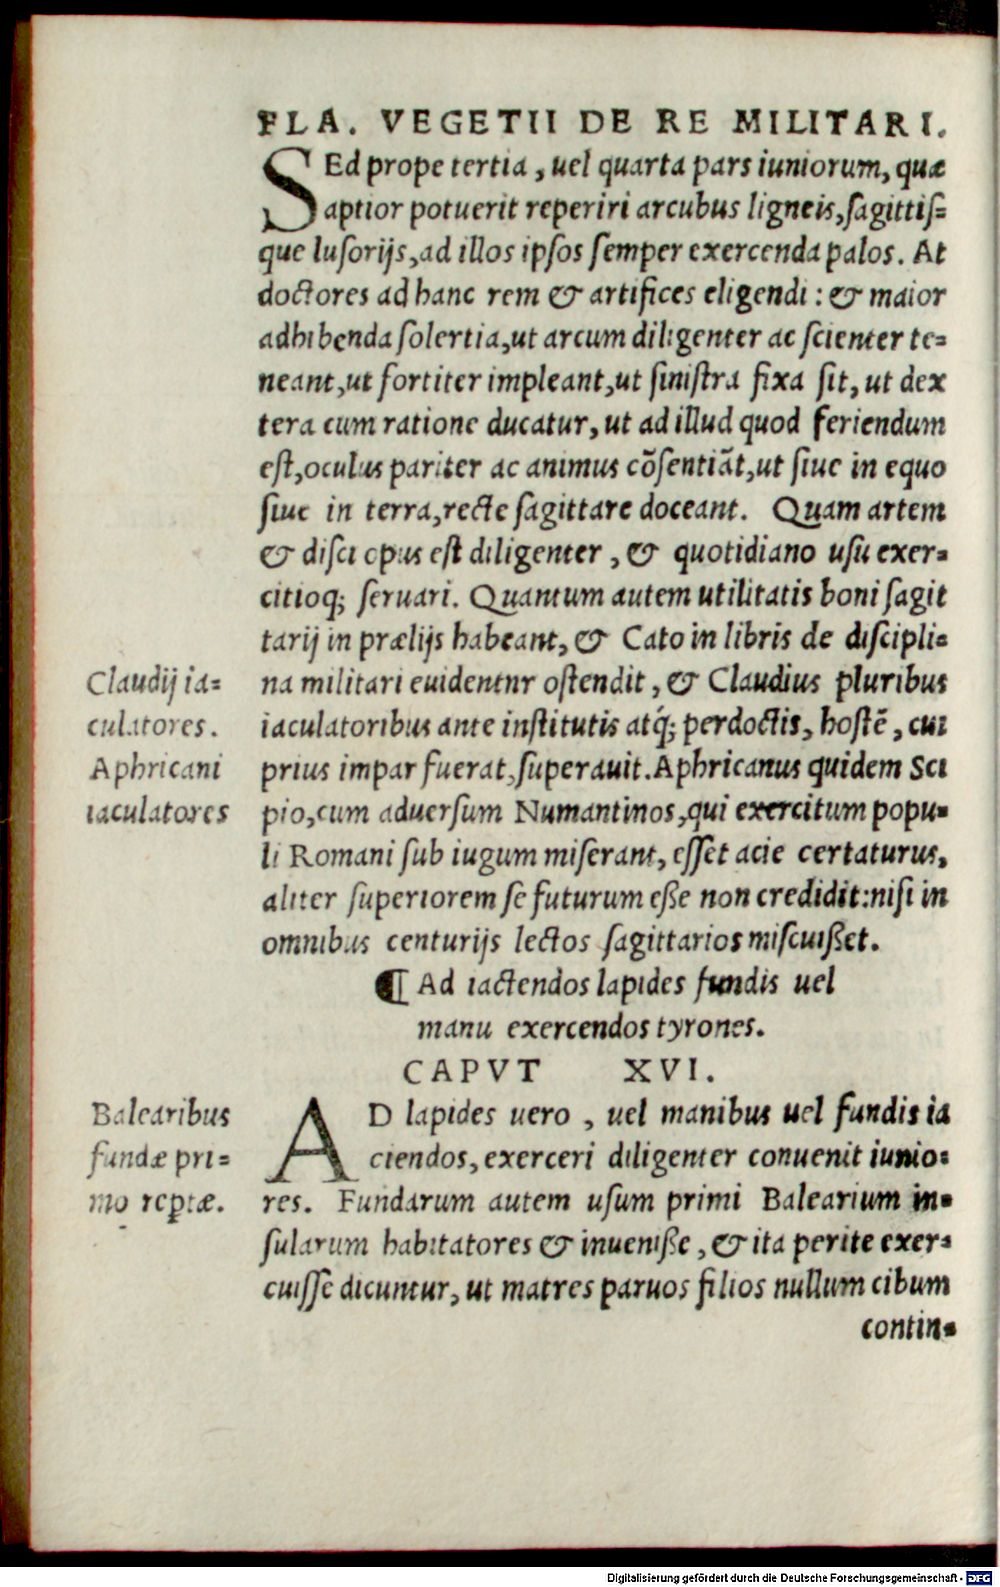 FLA. VEGETII DE RE MILITARI.
SEd prope tertia, uel quarta pars iuniorum, quæ
aptior potuerit reperiri arcubus ligneis, sagittis=
que lusorijs, ad illos ipsos semper exercenda palos. At
doctores ad hanc rem & artifices eligendi: & maior
adhibenda solertia, ut arcum diligenter ac scienter te=
neant, ut fortiter impleant, ut sinistra fixa sit, ut dex
tera cum ratione ducatur, ut ad illud quod feriendum
est, oculus pariter ac animus cõsentiãt, ut siue in equo
siue in terra, recte sagittare doceant. Quam artem
& disci opus est diligenter, & quotidiano usu exer=
citioq; seruari. Quantum autem utilitatis boni sagit
tarij in prælijs habeant, & Cato in libris de discipli=
Claudij ia=
na militari euidentnr ostendit, & Claudius pluribus
culatores.
iaculatoribus ante institutis atq́; perdoctis, hostẽ, cui
Aphricani
prius impar fuerat, superauit. Aphricanus quidem Sci
iaculatores
pio, cum aduersum Numantinos, qui exercitum popu=
li Romani sub iugum miserant, esset acie certaturus,
aliter superiorem se futurum eße non credidit: nisi in
omnibus centurijs lectos sagittarios miscuißet.
¶ Ad iactendos lapides fundis uel
manu exercendos tyrones.
CAPVT XVI.
Balearibus
AD lapides uero, uel manibus uel fundis ia
fundæ pri=
ciendos, exerceri diligenter conuenit iunio=
mo reptæ.
res. Fundarum autem usum primi Balearium in=
sularum habitatores & inueniße, & ita perite exer=
cuisse dicuntur, ut matres paruos filios nullum cibum
contin=
Digitalisierung gefördert durch die Deutsche Forschungsgemeinschaft - DFG